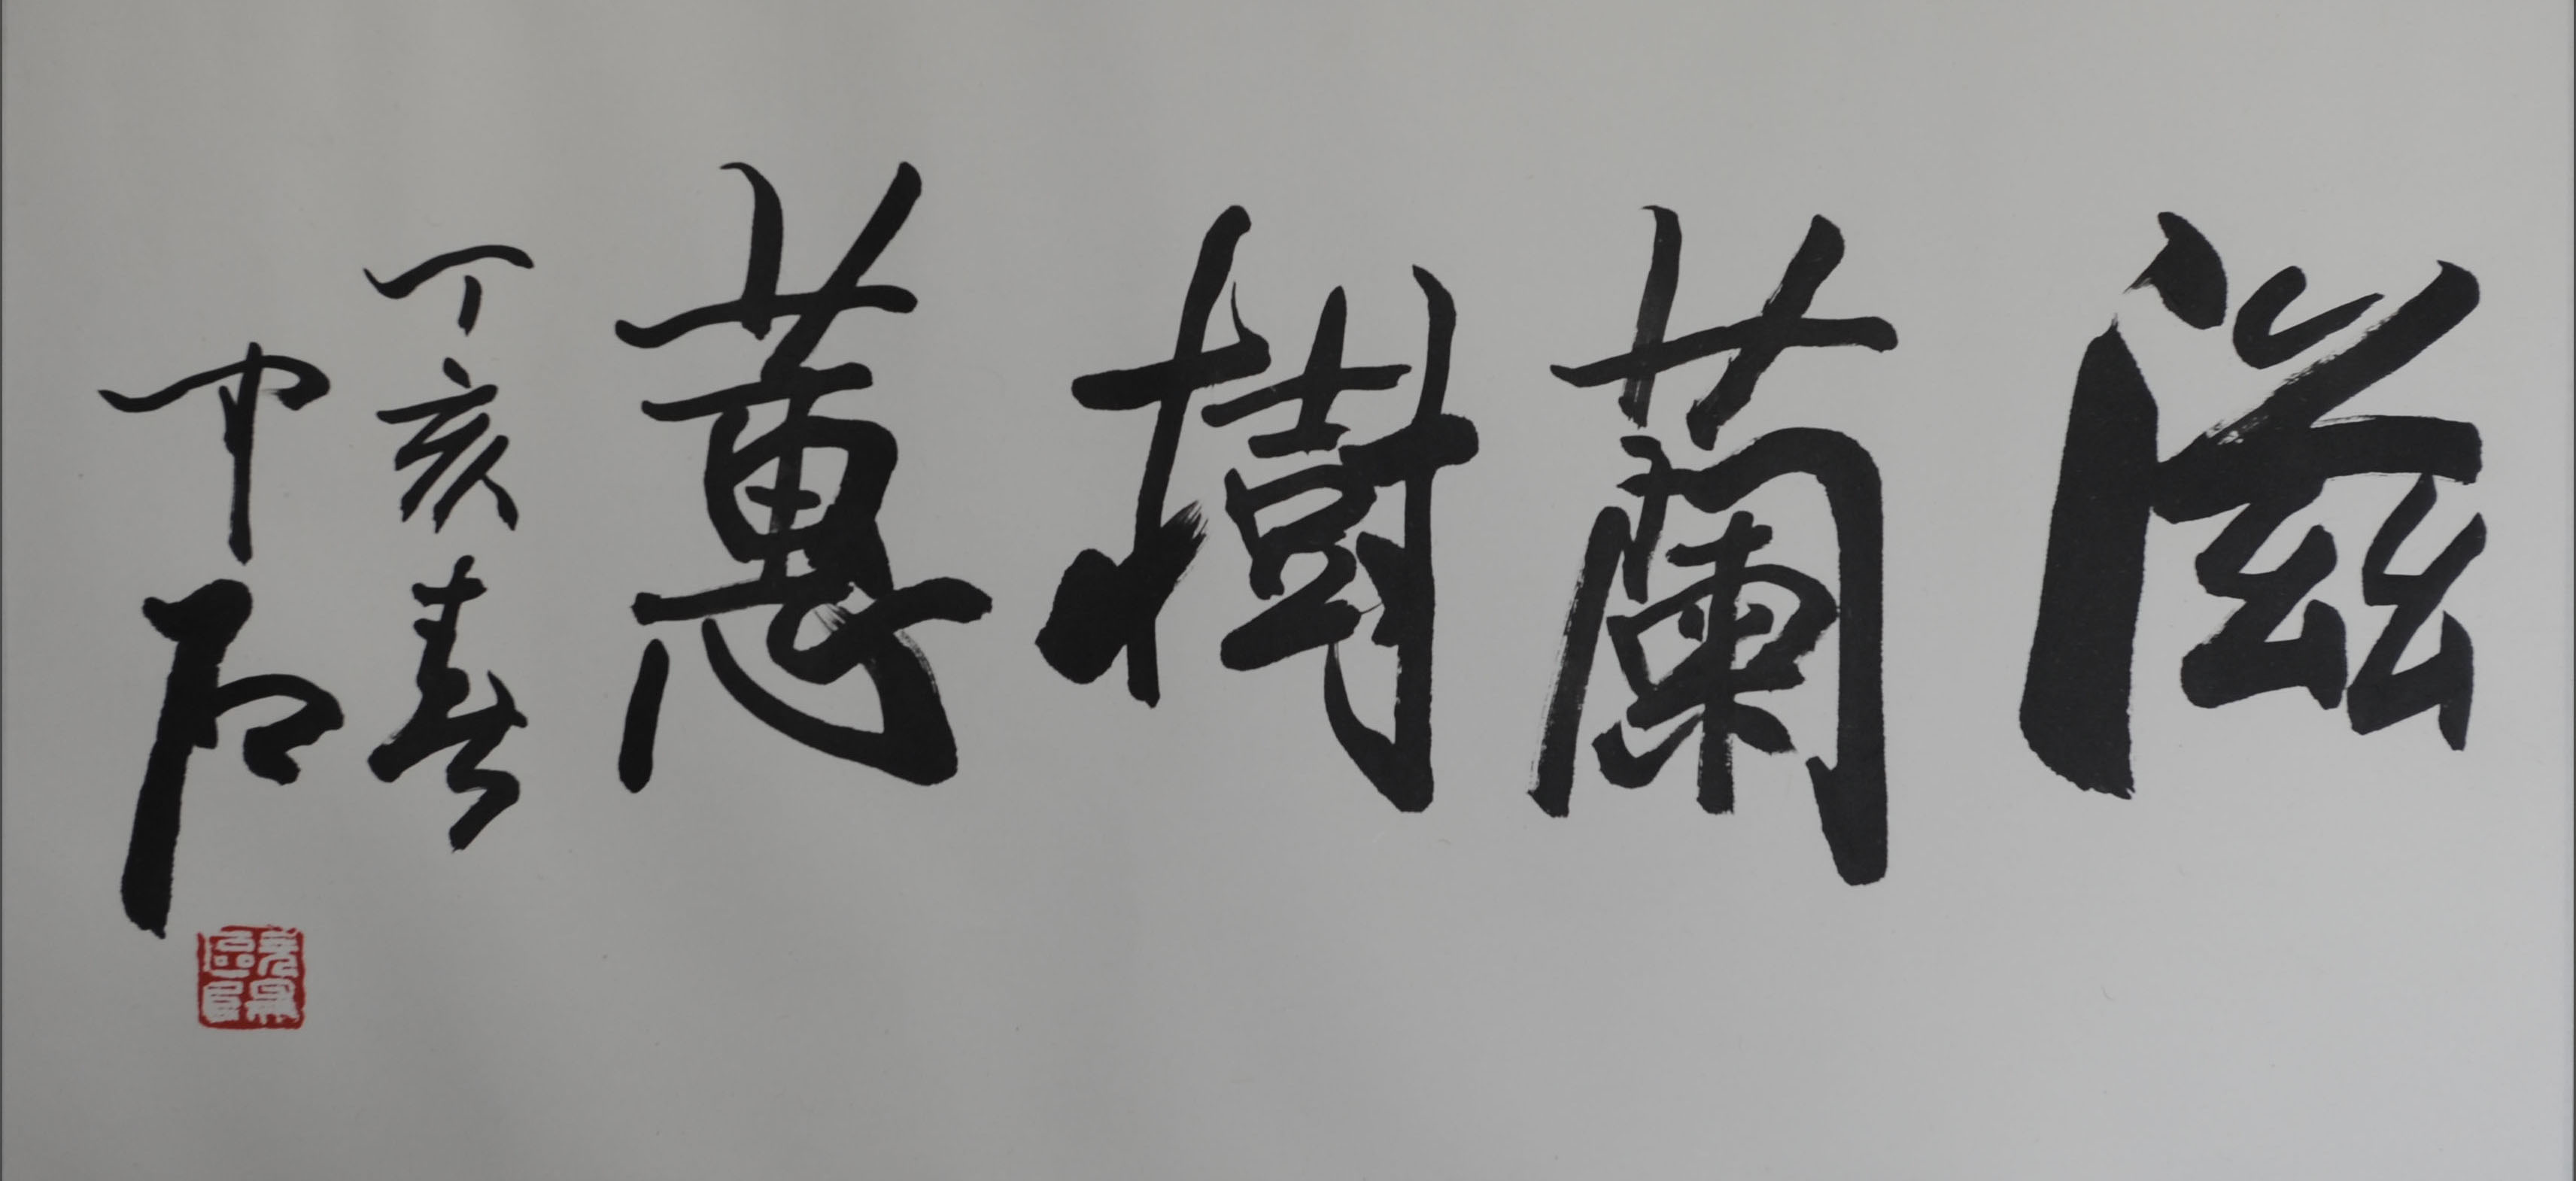 滋蘭樹蕙
丁亥春
中石